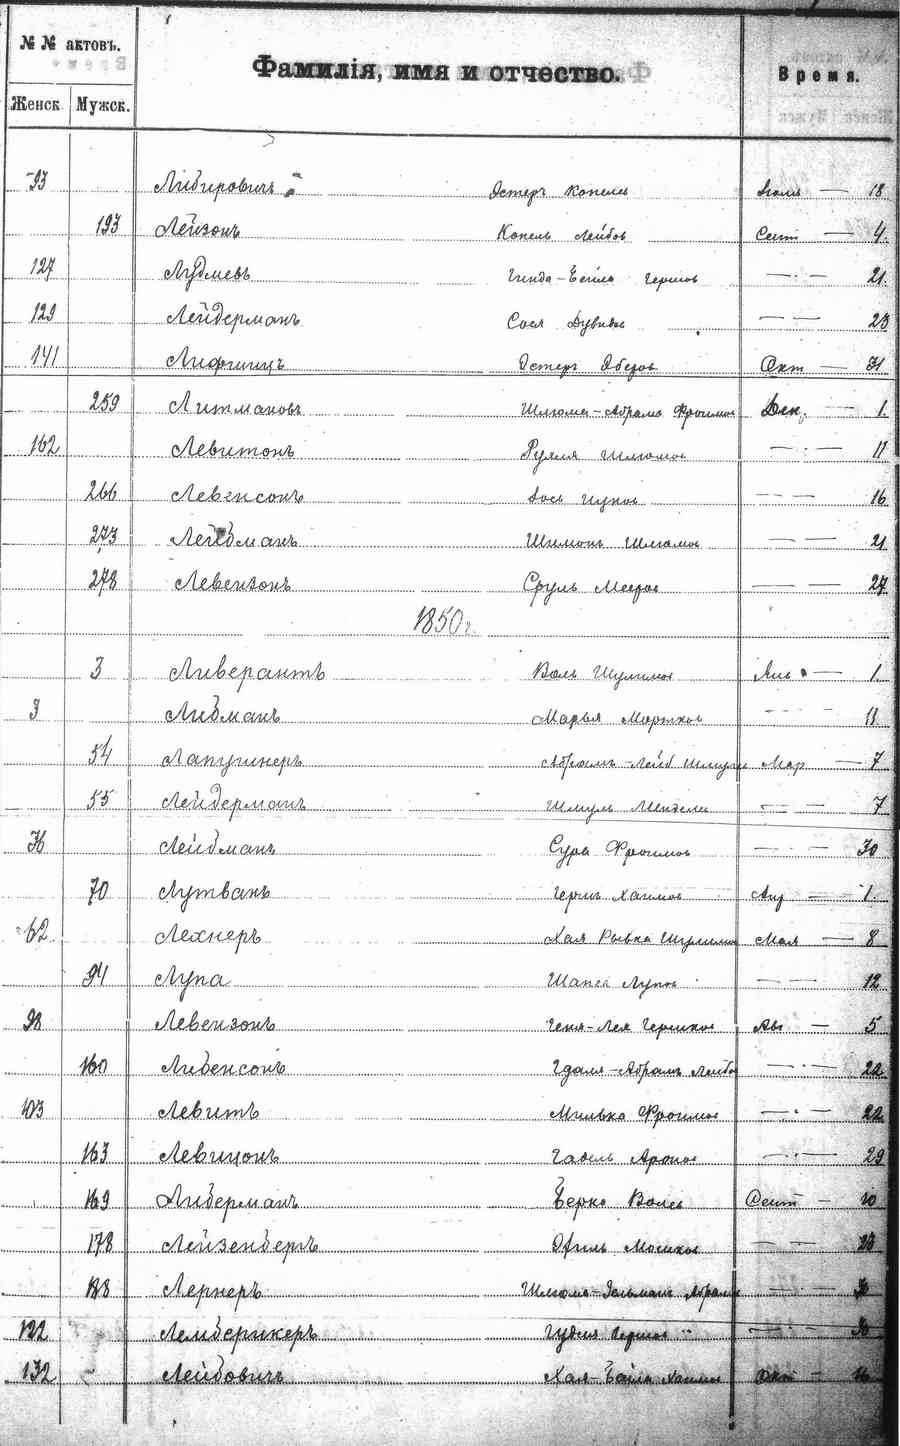 № № актовъ. Фамилія, имя и отчество. Время.
Женск. Мужск.
93 Либировичъ Эстеръ Копелев Іюля — 18
193 Лейзонъ Копель Лейбов Сент — 4.
127 Лудмевъ Гинда-Бейла Гершов — 21.
129 Лейдерманъ Сося Дувидов — — 23
141 Лифшицъ Эстеръ Окт — 31
259 Литмановъ Шлема-Абрамъ Фроимов Дек. — 1.
162 Левитонъ Рухля Шлемов — 11
266 Левенсонъ Іось — — 16
273 Лейбманъ Шимонъ Шлемов — — 21
278 Левензонъ Сруль Мееров — — 27
1850 г.
3 Ливерантъ Волъ Шулимов Янв — 1.
9 Либманъ Марья Мортков — — 11
54 Лапушнеръ Абрамъ-Лейб Шмуля Мар — 7
55 Лейдерманъ Шмуль Мендел — — 7
36 Лейбманъ Сура Фроимов — — 30
70 Лутванъ Гершъ Хаимов Апр — 1.
62 Лехнеръ Хая Рывка Шулимов Мая — 8
94 Лупа Шапса Лупов — — 12
98 Левензонъ Геня-Лея Гершков Авг — 5
160 Либенсонъ Гдаля-Абрамъ Лейбов — 22
103 Левитъ Милька Фроимов — 22
163 Левицонъ Гадель Аронов — 29
169 Либерманъ Берко Волев Сент — 10
178 Лейзенбергъ Мошков — — 23
188 Лернеръ Шлема-Зельманъ Абрамов — 30
122 Лембершкеръ Гудля Гершов — 30
132 Лейбовичъ Хая-Бейла Хаимов Окт — 16